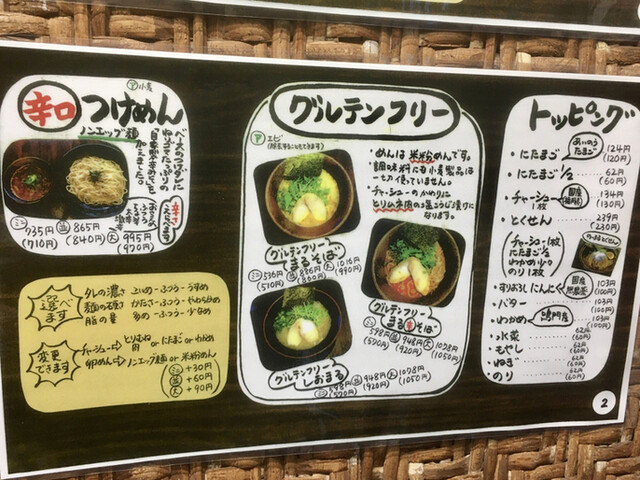 ア小麦
辛口 つけめん
ノンエッグ麺
ベースのつけダレに
加えました。
ミニ735円 並865円
(710円) (840円) 大995円
(970円)
選べます
タレの濃さ こいめ・ふつう・うすめ
麺の硬さ かため・ふつう・やわらかめ
脂の量 多め・ふつう・少なめ
変更できます
チャーシュー→とりむね肉 or にたまご or わかめ
卵めん→ノンエッグ麺 or 米粉めん
ミニ+30円
並+60円
大+90円
グルテンフリー
アエビ
・めんは 米粉めんです。
・調味料にも小麦製品は
一切使っていません。
・チャーシューのかわりに
とりムネ肉の塩こうじ漬けに
なります。
グルテンフリー
まるそば
ミニ536円 並886円 大1016円
(510円) (860円) (990円)
グルテンフリー
まる辛そば
ミニ598円 並948円 大1078円
(570円) (920円) (1050円)
グルテンフリー
しおまる
ミニ598円 並948円 大1078円
(570円) (920円) (1050円)
トッピング
・にたまご あいのうたまご 124円
(120円)
・にたまご1/2 62円
(60円)
・チャーシュー1枚 国産 134円
(130円)
・とくせん 239円
(230円)
(チャーシュー1枚
にたまご1/2
わかめ小々
のり1枚)
・すりおろしにんにく 国産無農薬 103円
(100円)
・バター 103円
(100円)
・わかめ 鳴門産 103円
(100円)
・水菜 62円
(60円)
・もやし 62円
(60円)
・ねぎ 62円
(60円)
・のり 62円
(60円)
2